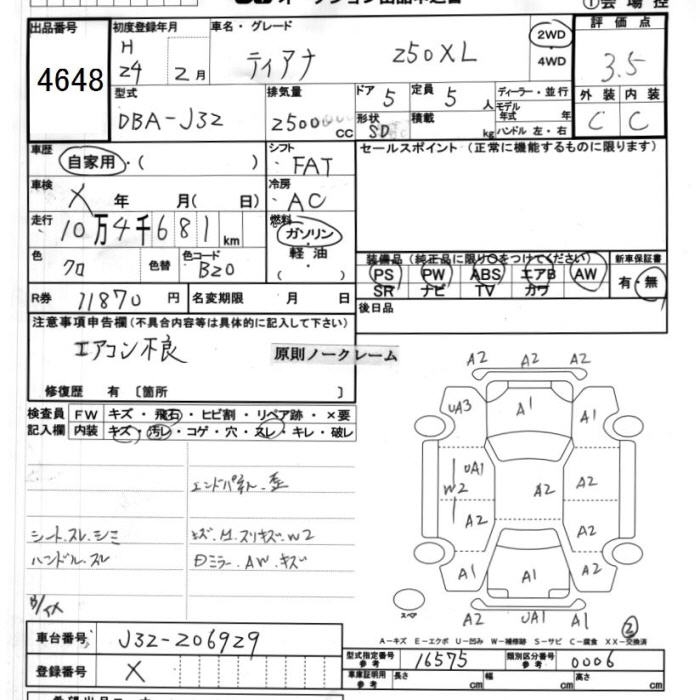 ①会場控
出品番号
4648
初度登録年月
H
24 2月
車名・グレード
ティアナ 250XL
2WD
・
4WD
評価点
3.5
外装 内装
C C
型式
DBA-J32
排気量
2500 CC
ドア 5
定員 5 人
形状 SD
積載 kg
ディーラー・並行
モデル年式 年
ハンドル 左・右
車歴
自家用・( )
シフト
FAT
セールスポイント(正常に機能するものに限ります)
車検
X 年 月( 日)
冷房
AC
走行
10万4千681 km
燃料
ガソリン
・
軽油
・( )
色
クロ
色替
色コード
B20
装備品(純正品に限り○をつけてください)
PS PW ABS エアB AW
SR ナビ TV カワ
新車保証書
有・無
R券 11870 円
名変期限 月 日
後日品
注意事項申告欄(不具合内容等は具体的に記入して下さい)
エアコン不良
原則ノークレーム
修復歴 有 〔箇所 〕
検査員
記入欄
FW キズ・飛石・ヒビ割・リペア跡・×要
内装 キズ・汚レ・コゲ・穴・スレ・キレ・破レ
シート.スレ.シミ
ハンドル.スレ
A2 A2 A2
UA3 A1 A1
UA1
W2 A2 A2
A2 A2
A1 A1 A2
A2 UA1 A1
スペア
②
A-キズ E-エクボ U-凹み W-補修跡 S-サビ C-腐食 XX-交換済
車台番号
J32-206929
登録番号
X
型式指定番号
参考
16575
類別区分番号
参考
0006
車庫証明用
参考
長さ cm
幅 cm
高さ cm